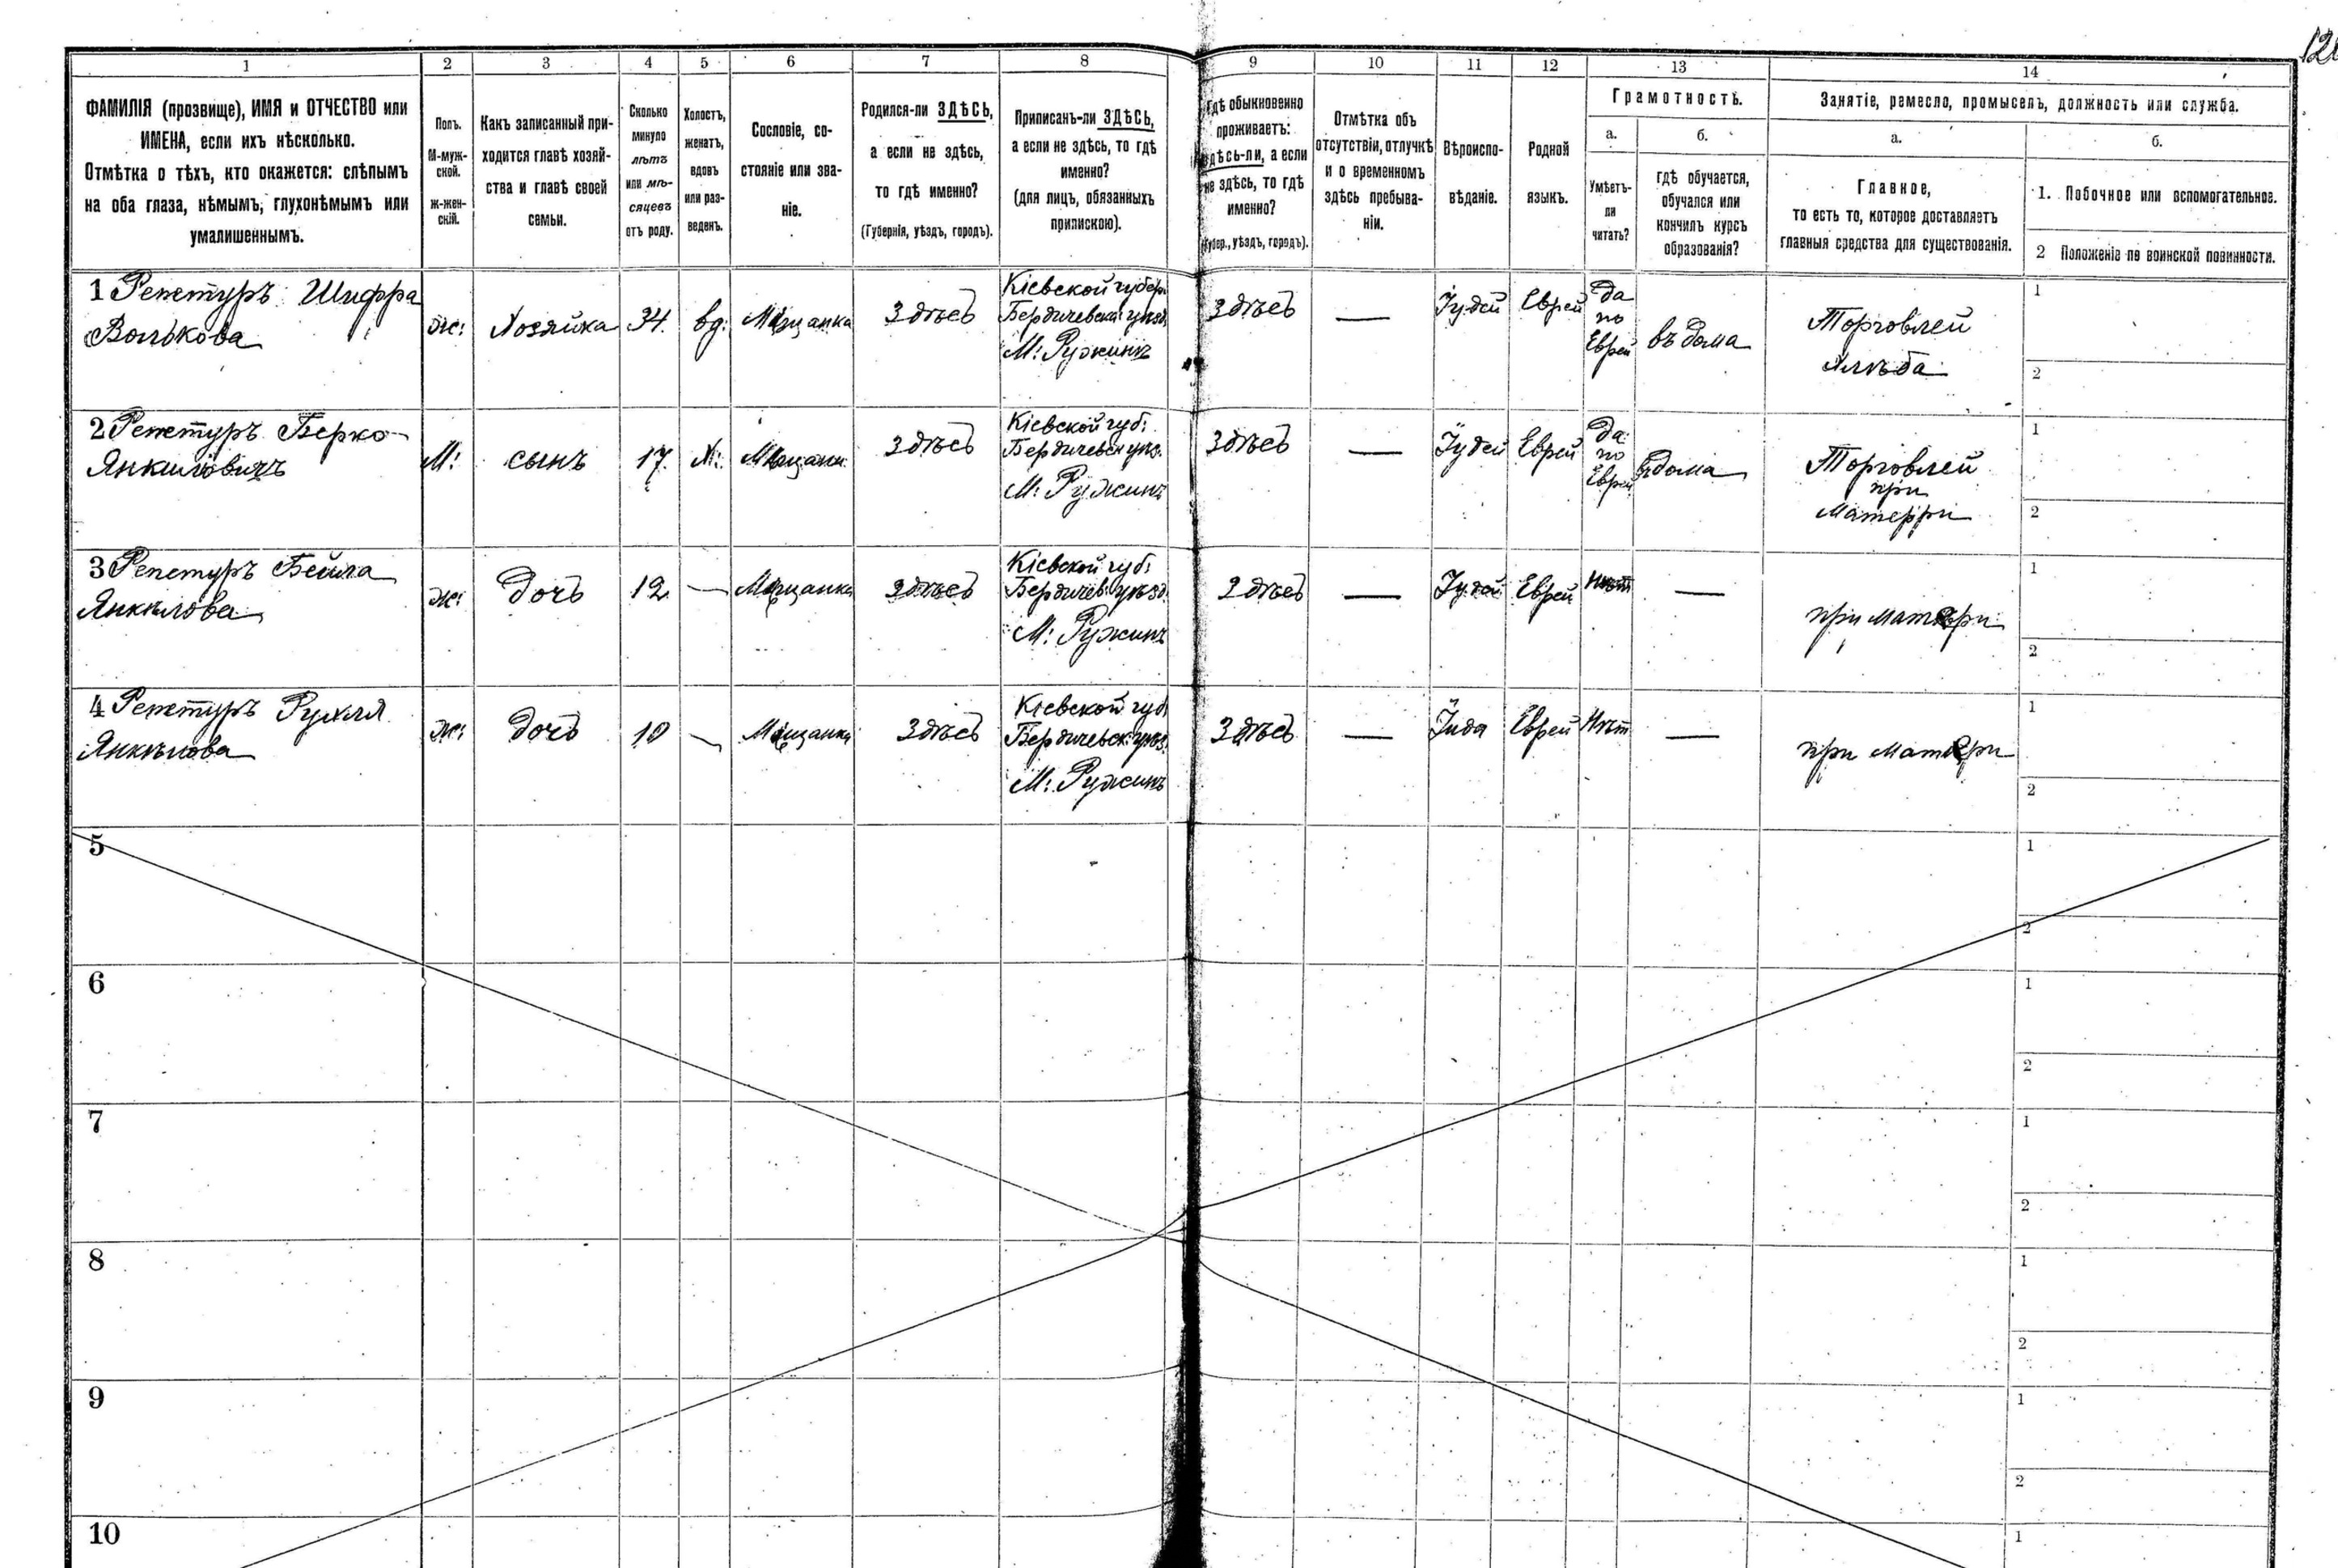 12
1 2 3 4 5 6 7 8 9 10 11 12 13 14
ФАМИЛІЯ (прозвище), ИМЯ и ОТЧЕСТВО или
ИМЕНА, если ихъ нѣсколько.
Отмѣтка о тѣхъ, кто окажется: слѣпымъ
на оба глаза, нѣмымъ, глухонѣмымъ или
умалишеннымъ.
Полъ.
М-муж-
ской.
ж-жен-
скій.
Какъ записанный при-
ходится главѣ хозяй-
ства и главѣ своей
семьи.
Сколько
минуло
лѣтъ
или мѣ-
сяцевъ
отъ роду.
Холостъ,
женатъ,
вдовъ
или раз-
веденъ.
Сословіе, со-
стояніе или зва-
ніе.
Родился-ли ЗДѢСЬ,
а если не здѣсь,
то гдѣ именно?
(Губернія, уѣздъ, городъ).
Приписанъ-ли ЗДѢСЬ,
а если не здѣсь, то гдѣ
именно?
(для лицъ, обязанныхъ
припискою).
Гдѣ обыкновенно
проживаетъ:
здѣсь-ли, а если
не здѣсь, то гдѣ
именно?
(Губер., уѣздъ, городъ).
Отмѣтка объ
отсутствіи, отлучкѣ
и о временномъ
здѣсь пребыва-
ніи.
Вѣроиспо-
вѣданіе.
Родной
языкъ.
Грамотность.
а.
Умѣетъ-
ли
читать?
б.
гдѣ обучается,
обучался или
кончилъ курсъ
образованія?
Занятіе, ремесло, промыселъ, должность или служба.
а.
Главное,
то есть то, которое доставляетъ
главныя средства для существованія.
б.
1. Побочное или вспомогательное.
2 Положеніе по воинской повинности.
1 Репетуръ Шифра
Волькова
ж: Хозяйка 34. вд: Мѣщанка Здѣсь
Кіевской губер:
Бердичевска уѣзд
М: Ружинъ
Здѣсь — Іудей Еврей
да
по
Еврей
въ дома
Торговлей
Хлѣба
1
2
2 Репетуръ Берко
Янкиловичъ
М: сынъ 17. Х: Мѣщани Здѣсь
Кіевской губ:
Бердичевск уѣз.
М: Ружинъ
Здѣсь — Іудей Еврей
да
по
Еврей
Вдома
Торговлей
при
Матерри
1
2
3 Репетуръ Бейла
Янкилова
ж: дочь 12 — Мѣщанка Здѣсь
Кіевской губ:
Бердичев: уѣзд.
М: Ружинъ
Здѣсь — Іудей Еврей Нѣт —
при Матери
1
2
4 Репетуръ Рухля
Янкилова
ж: дочь 10 — Мѣщанка Здѣсь
Кіевской губ.
Бердичевск: уѣз.
М: Ружинъ
Здѣсь — Іуда Еврей Нѣт —
при Матери
1
2
5
1
2
6
1
2
7
1
2
8
1
2
9
1
2
10
1